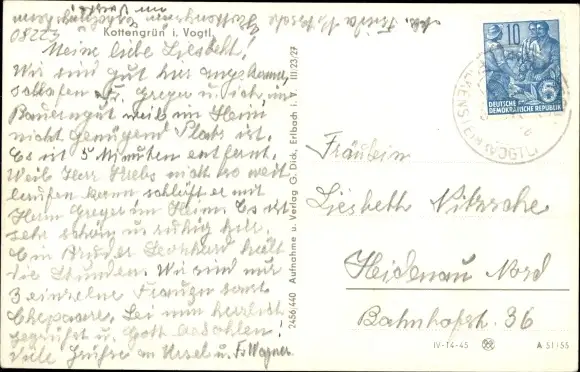 Abs. Frieda Nitzsche
Kottengrün i. Vogtl.
Meine liebe Liesbeth!
Wir sind gut hier angekommen,
schlafen Fr. Greger u. ich, im
Bauerngut weil im Heim
nicht genügend Platz ist.
Es ist 5 Minuten entfernt.
Weil Herr Krebs nicht so weit
laufen kann schläft er mit
Herrn Greger im Heim. Es ist
sehr schön u. ruhig hier.
Ein Bruder Leonhard hält
die Stunden. Wir sind nur
3 einzelne Frauen sonst
Ehepaare. Sei nun herzlich
gegrüßt u. Gott befohlen!
Viele Grüße an Ursel u. Fr. Wagner.
2456/440 Aufnahme u. Verlag G. Dick, Erlbach i. V. III 23/29
10 5
DEUTSCHE
DEMOKRATISCHE REPUBLIK
(VOGTL)
Fräulein
Liesbeth Nitzsche
Heidenau Nord
Bahnhofstr. 36
IV-14-45 A 51/55